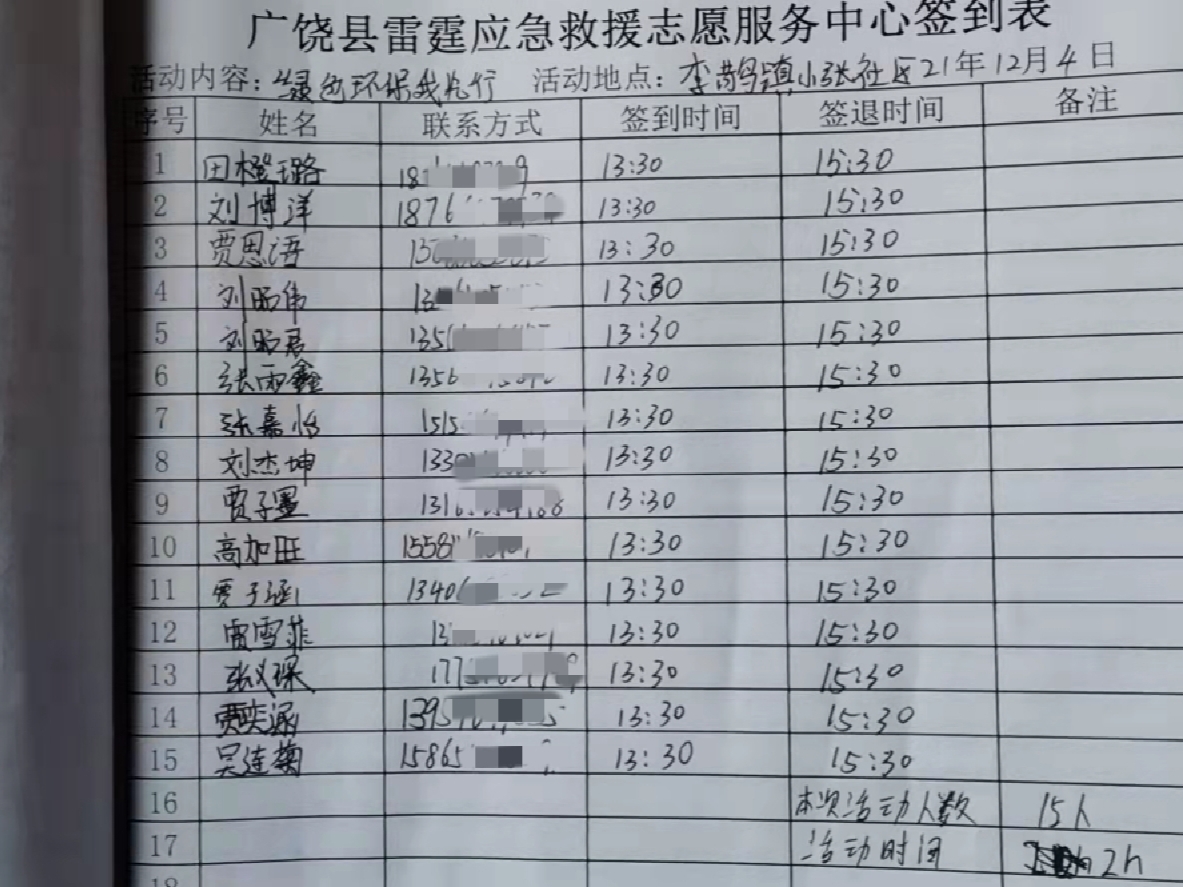 广饶县雷霆应急救援志愿服务中心签到表
活动内容：绿色环保我先行 活动地点：李鹊镇小张社区21年12月4日
序号 姓名 联系方式 签到时间 签退时间 备注
1 田橙璐 18 9 13:30 15:30
2 刘博洋 1876 13:30 15:30
3 贾思语 13:30 15:30
4 刘昭伟 13:30 15:30
5 刘昭君 135 13:30 15:30
6 张雨鑫 1356 13:30 15:30
7 张嘉怡 1515 13:30 15:30
8 刘杰坤 133 13:30 15:30
9 贾子墨 1316 13:30 15:30
10 高加旺 1558 13:30 15:30
11 贾子涵 1340 13:30 15:30
12 雪菲 13 13:30 15:30
13 张义琛 177 13:30 15:30
14 贾奕涵 1395 13:30 15:30
15 吴连菊 15865 13:30 15:30
16 本次活动人数 15人
17 活动时间 2h